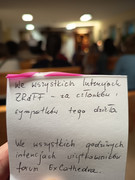 We wszystkich intencjach
ZRdTT – za członków i
sympatyków tego dzieła.
We wszystkich godziwych
intencjach użytkowników
forum ExCathedra.